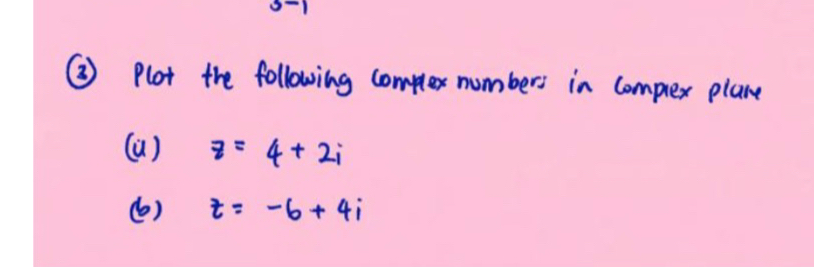 ② Plot the following complex numbers in complex plane
(a) z = 4 + 2i
(b) z = -6 + 4i